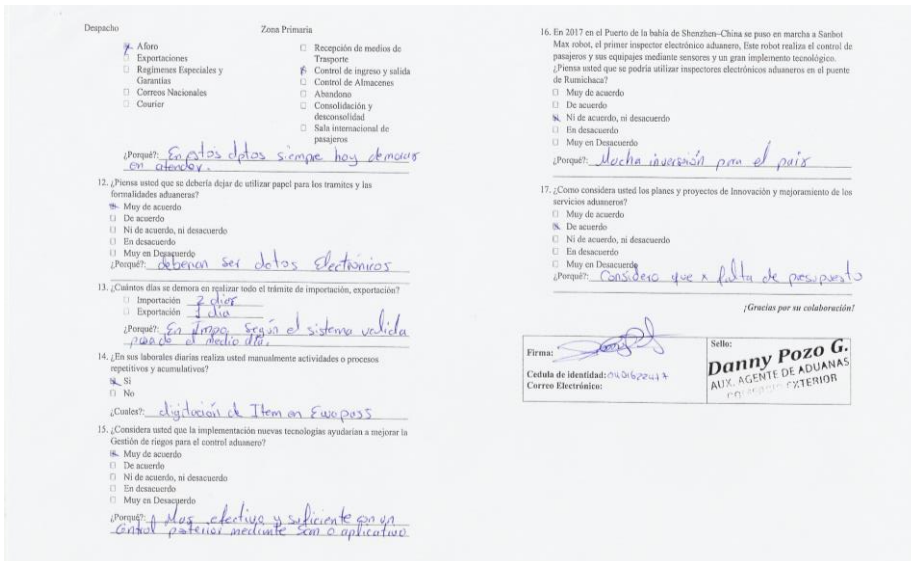 Despacho
Zona Primaria
Aforo
Exportaciones
Regímenes Especiales y
Garantías
Correos Nacionales
Courier
Recepción de medios de
Trasporte
Control de ingreso y salida
Control de Almacenes
Abandono
Consolidación y
desconsolidad
Sala internacional de
pasajeros
¿Porqué?: En estos dptos siempre hay demoras
en atender.
12. ¿Piensa usted que se debería dejar de utilizar papel para los tramites y las
formalidades aduaneras?
Muy de acuerdo
De acuerdo
Ni de acuerdo, ni desacuerdo
En desacuerdo
Muy en Desacuerdo
¿Porqué?: deberían ser datos Electrónicos
13. ¿Cuántos días se demora en realizar todo el trámite de importación, exportación?
Importación 2 dias
Exportación 1 dia
¿Porqué?: En Impo. Según el sistema valida
pasado el medio día.
14. ¿En sus laborales diarias realiza usted manualmente actividades o procesos
repetitivos y acumulativos?
Si
No
¿Cuales?: digitación de Item en Ecuapass
15. ¿Considera usted que la implementación nuevas tecnologías ayudarían a mejorar la
Gestión de riegos para el control aduanero?
Muy de acuerdo
De acuerdo
Ni de acuerdo, ni desacuerdo
En desacuerdo
Muy en Desacuerdo
¿Porqué?: Mas efectivo y suficiente con un
Control posterior mediante o aplicativo
16. En 2017 en el Puerto de la bahía de Shenzhen–China se puso en marcha a Sanbot
Max robot, el primer inspector electrónico aduanero, Este robot realiza el control de
pasajeros y sus equipajes mediante sensores y un gran implemento tecnológico.
¿Piensa usted que se podría utilizar inspectores electrónicos aduaneros en el puente
de Rumichaca?
Muy de acuerdo
De acuerdo
Ni de acuerdo, ni desacuerdo
En desacuerdo
Muy en Desacuerdo
¿Porqué?: Mucha inversión para el país
17. ¿Como considera usted los planes y proyectos de Innovación y mejoramiento de los
servicios aduaneros?
Muy de acuerdo
De acuerdo
Ni de acuerdo, ni desacuerdo
En desacuerdo
Muy en Desacuerdo
¿Porqué?: Considero que x falta de presupuesto
¡Gracias por su colaboración!
Firma:
Cedula de identidad:
Correo Electrónico:
Sello:
Danny Pozo G.
AUX. AGENTE DE ADUANAS
EXTERIOR